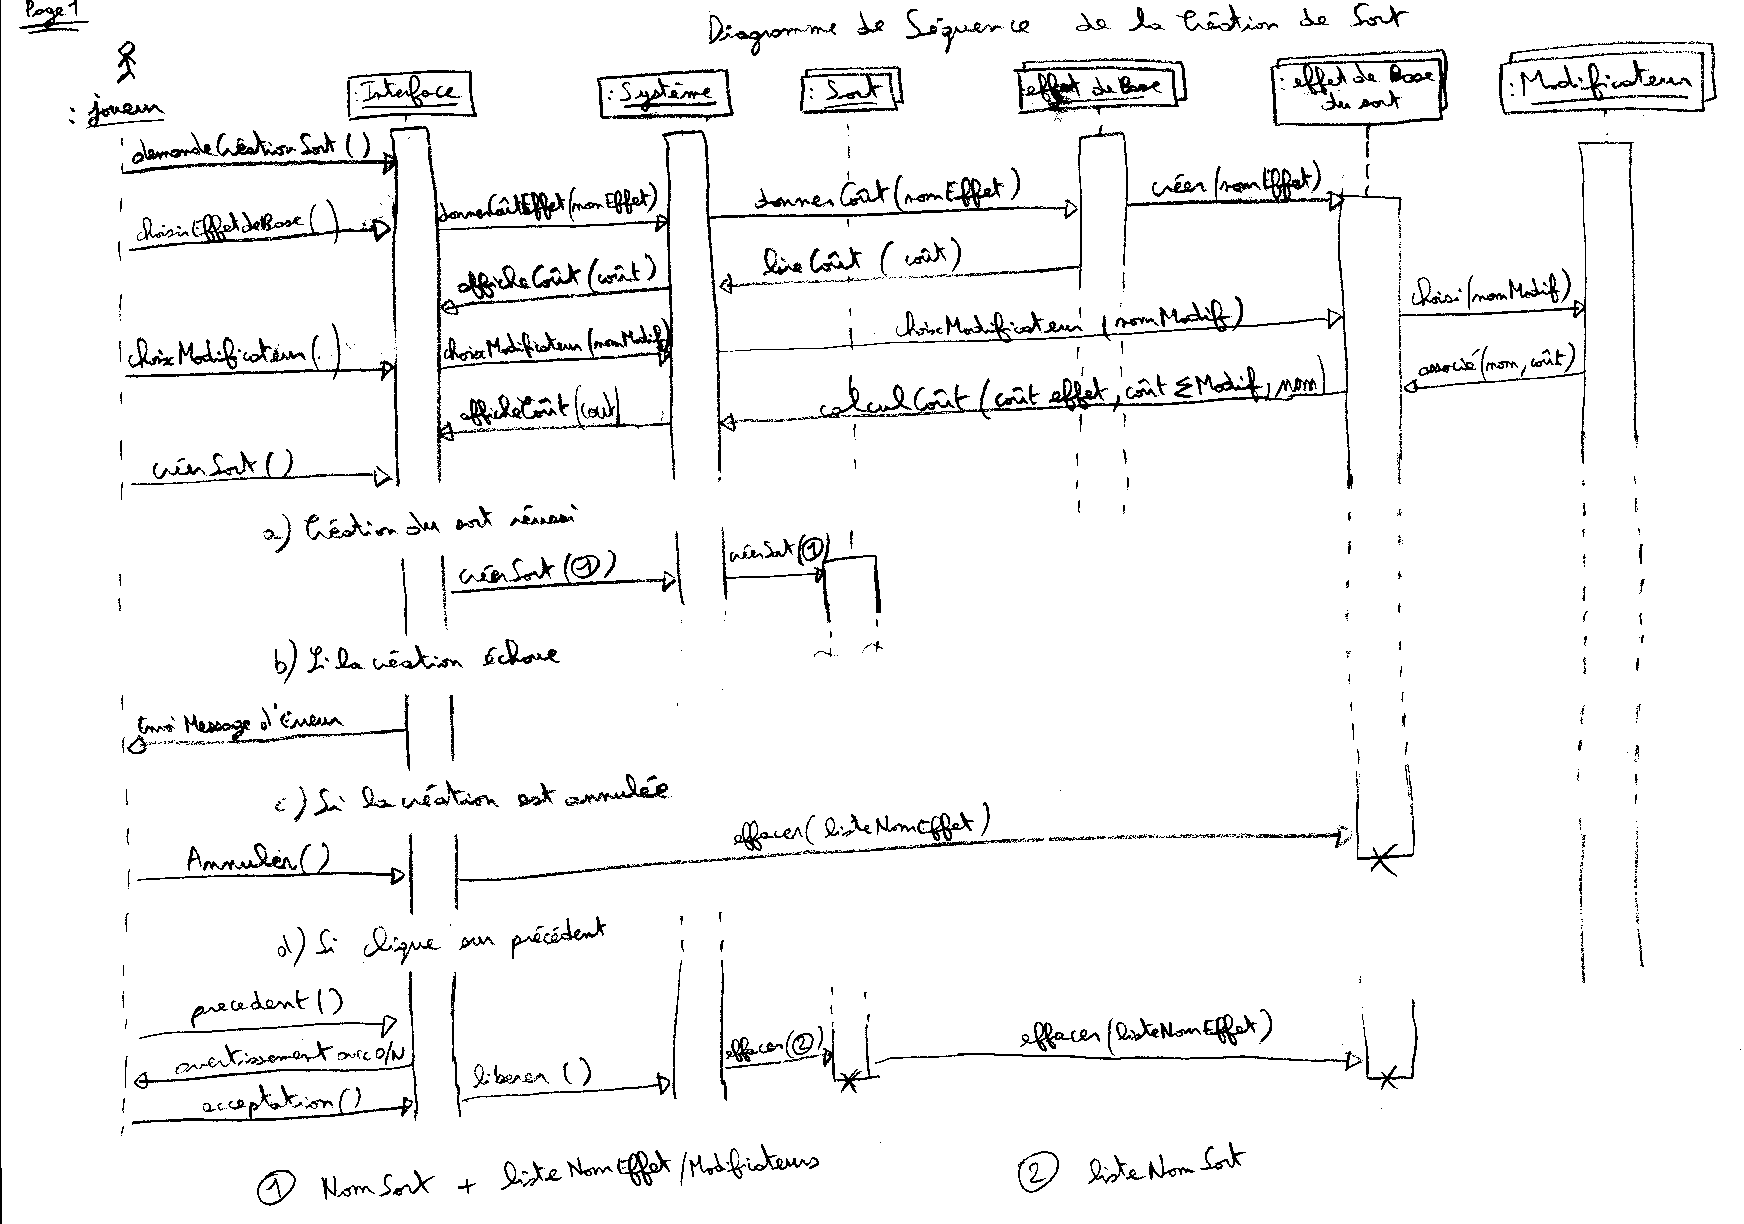 Page 1
Diagramme de Séquence de la Création de Sort
: joueur
: Interface
: Système
: Sort
effet de Base
: effet de Base
du sort
: Modificateur
demandeCréationSort ( )
choisirEffetdeBase ( )
donnerCoûtEffet (nomEffet)
donnerCoût (nomEffet)
créer (nomEffet)
lireCoût ( coût)
afficheCoût (coût)
choisi (nomModif)
choixModificateur ( nomModif)
choixModificateur (nomModif)
choixModificateur ( )
associé (nom, coût)
calculCoût ( coût effet, coût ΣModif, nom)
afficheCoût (cout)
créerSort ( )
a) Création du sort réussi
créerSort (①)
créerSort (①)
b) Si la création échoue
Envoi Message d'Erreur
c) Si la création est annulée
effacer ( listeNomEffet)
Annuler ( )
d) Si clique sur précédent
precedent ( )
avertissement avec O/N
effacer (②)
effacer (listeNomEffet)
liberer ( )
acceptation ( )
① NomSort + listeNomEffet/Modificateurs
② listeNomSort